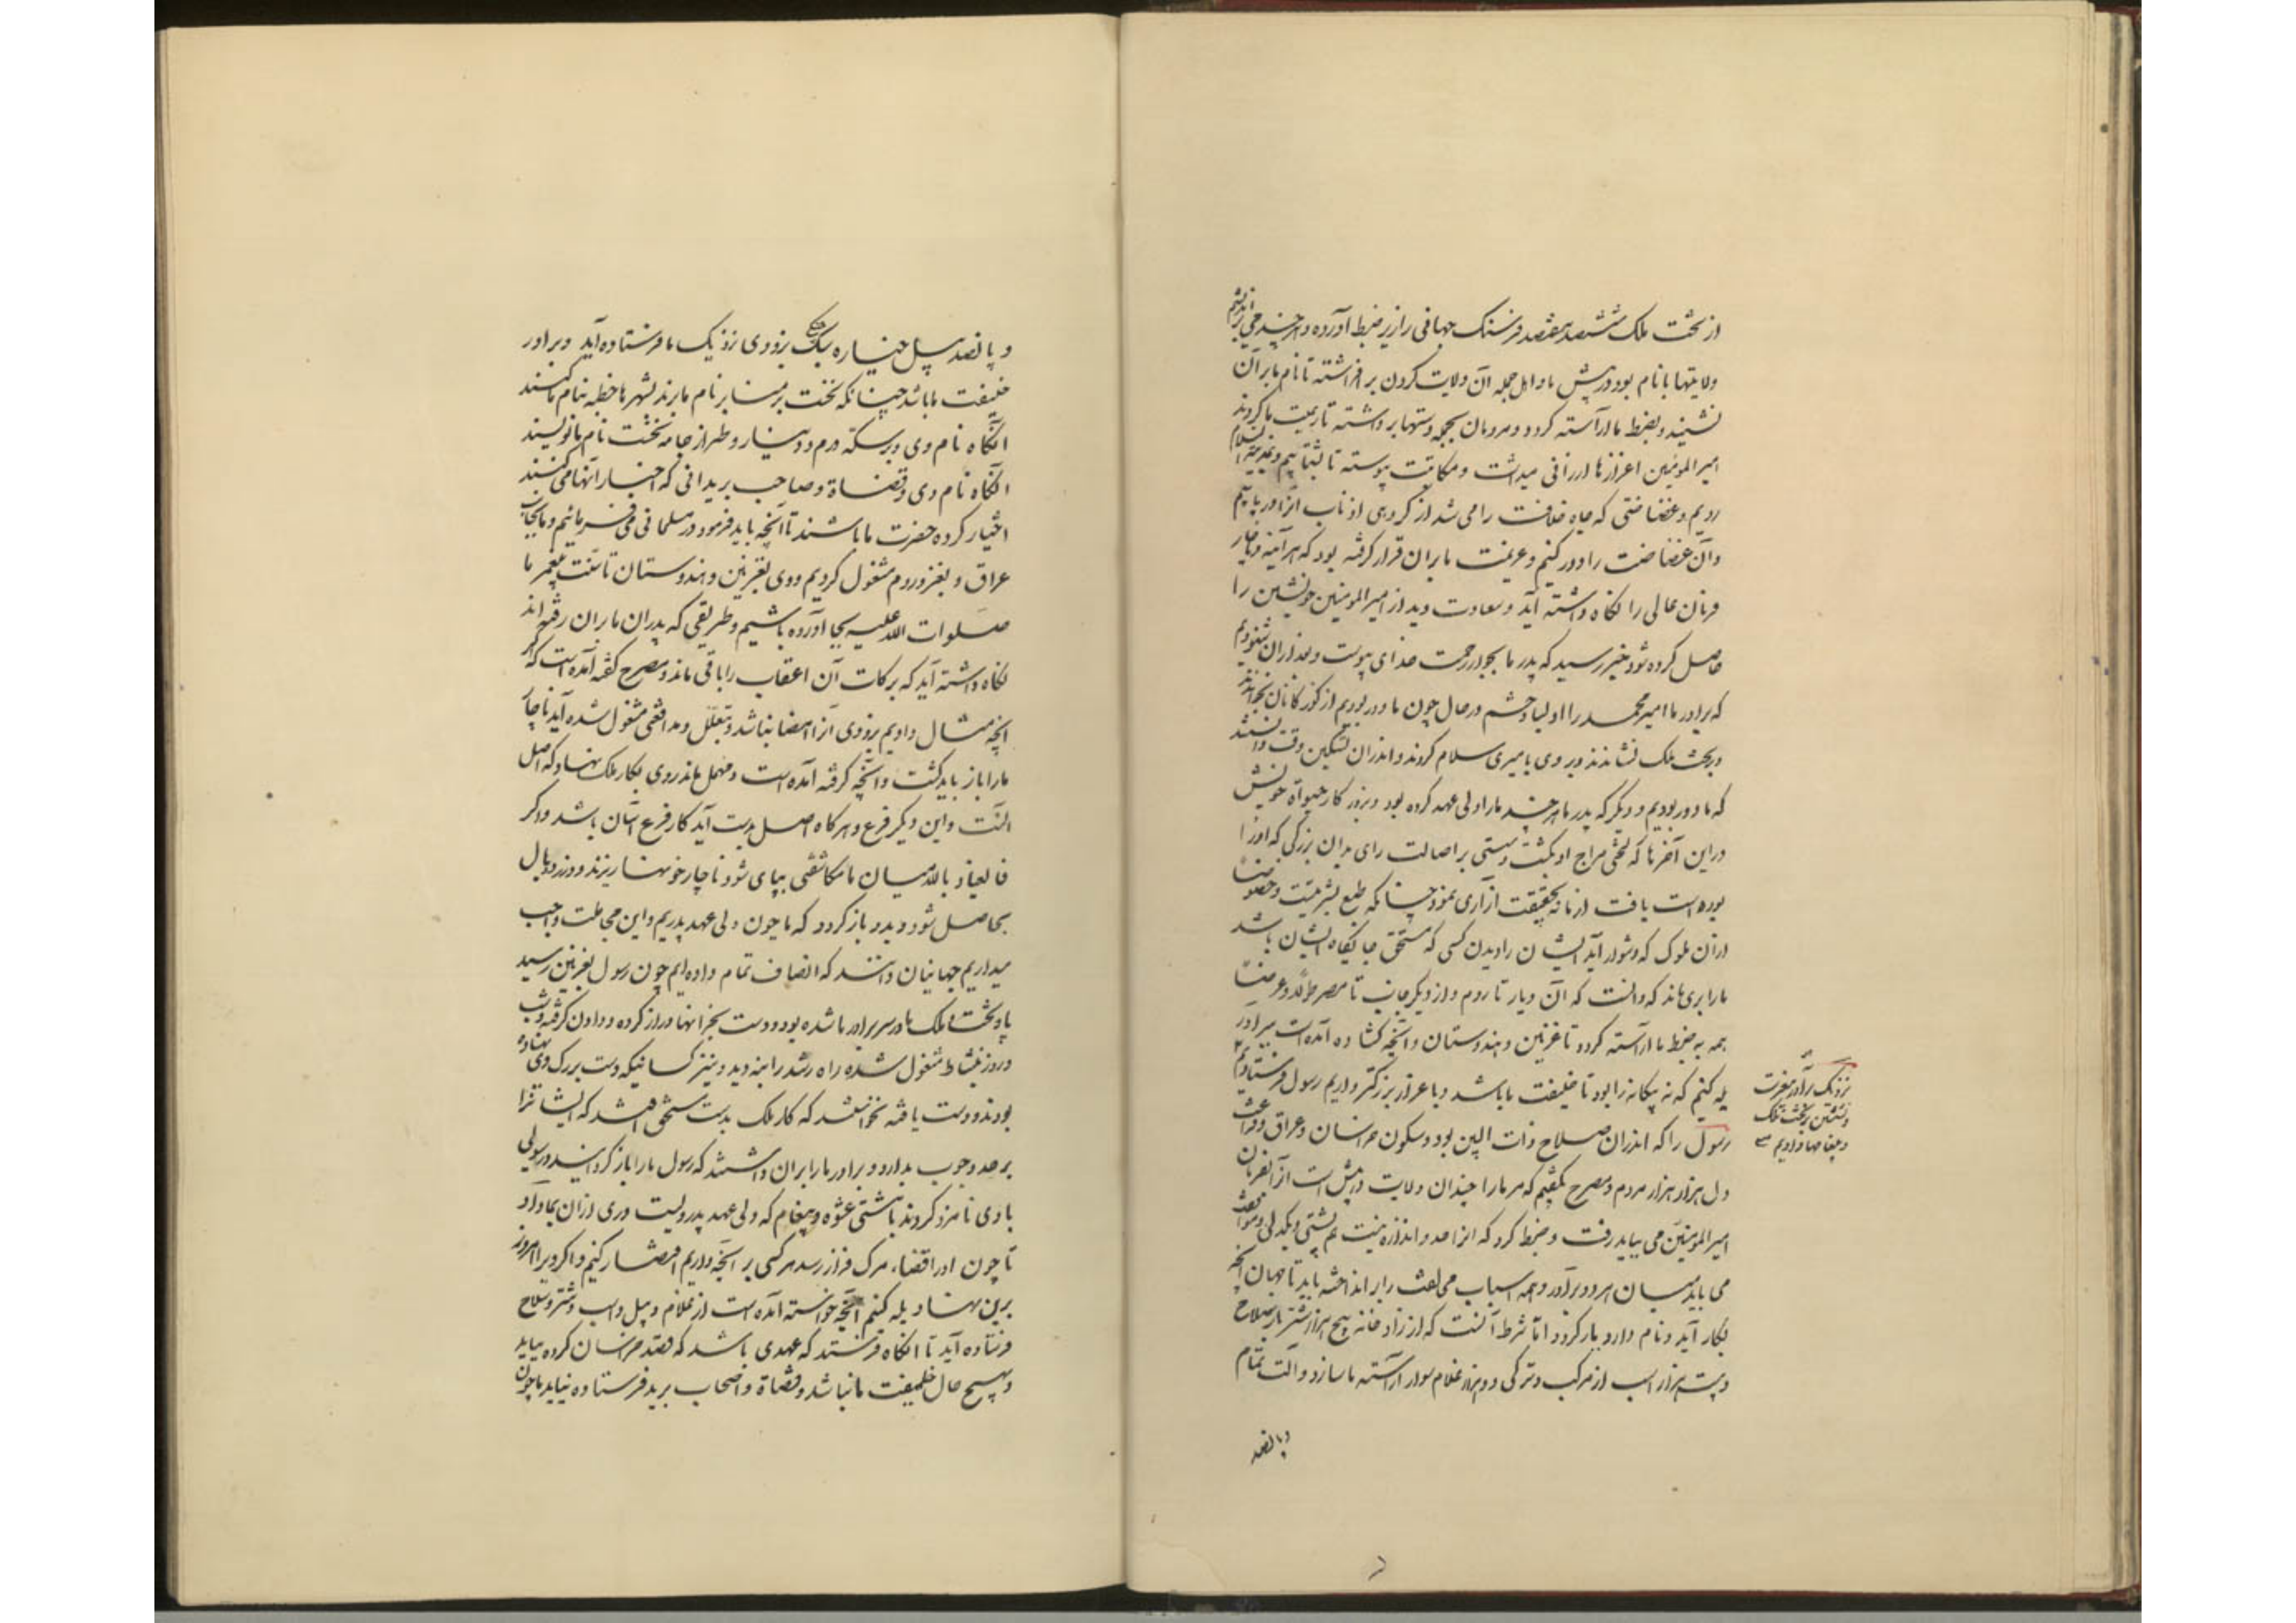 از تخت ملک ششصد هفتصد فرسنگ جهانی را زیر ضبط آورده و هر چند می براندیشم
ولایتها بانام بود در پیش ما و اهل جمله آن ولایت گردن بر افراشته تا نام ما بر آن
نشیند و بضبط ما آراسته گردد و مردمان بجمله دستها برداشته تا رعیت ما گردند
امیر المومنین اعزازها ارزانی میداشت و مکاتبت پیوسته تا بشتابیم و بمدینة السلام
رویم و غضاضتی که جاه خلافت را می شد از گروهی اذناب آنرا دریابیم
و آن غضاضت را دور کنیم و عزیمت ما بران قرار گرفته بود که هر آینه و ناچار
فرمان عالی را نگاه داشته آید و سعادت دیدار امیر المومنین خویشتن را
حاصل کرده شود خبر رسید که پدر ما بجوار رحمت خدای پیوست و بعد ازان شنودیم
که برادر ما امیر محمد را اولیا و حشم در حال چون ما دور بودیم از گوزکانان بخواندند
و بر تخت ملک نشاندند و بر وی بامیری سلام کردند و اندران تسکین وقت دانستند
که ما دور بودیم و دیگر که پدر ما هر چند ما را ولی عهد کرده بود و بروزگار حیوة خویش
در این آخرها که لختی مزاج او بگشت و سستی بر اصالت رای بدان بزرگی که او را
بوده است یافت از ما نه بحقیقت آزاری نمود چنانکه طبع بشریت و خصوصا
ازان ملوک که دشوار آید ایشان را دیدن کسی که مستحق جایگاه ایشان باشد
ما را بری ماند که دانست که آن دیار تا روم و از دیگر جانب تا مصر طولا و عرضا
همه به ضبط ما آراسته گردد تا غزنین و هندوستان و آنچه گشاده آمده است ببرادر
یله کنیم که نه بیگانه را بود تا خلیفت ما باشد و با عزاز بزرگتر داریم رسول فرستادیم
نزدیک برادر بتعزیت
و نشستن بر تخت ملک
و پیغامها دادیم
رسول را که اندران صلاح ذات البین بود و سکون خراسان و عراق و فراغت
دل هزار هزار مردم و مصرح بگفتیم که مر ما را چندان ولایت در پیش است از آن بفرمان
امیر المومنین می بباید رفت و ضبط کرد که انرا حد و اندازه نیست هم پشتی و یکدلی و موافقت
می باید میان هر دو برادر و همه اسباب مخالفت را برانداخته باید تا جهان آنچه
بکار آید و نام دارد بار گردد اما شرط آنست که از زرادخانه پنج هزار شتر بار سلاح
و بیست هزار اسب از مرکب و ترکی دو هزار غلام سوار آراسته با ساز و آلت تمام
و پانصد
و پانصد پیل خیاره سبک جنگی بزودی نزدیک ما فرستاده آید و برادر
خلیفت ما باشد چنانکه نخست بر منابر نام ما برند بشهرها خطبه بنام ما کنند
آنگاه نام وی و بر سکه درم و دینار و طراز جامه نخست نام ما نویسند
آنگاه نام وی و قضاة و صاحب بریدانی که اخبار آنها می کنند
اختیار کرده حضرت ما باشند تا آنچه باید فرمود در مسلمانی می فرمائیم و ما بجانب
عراق و بغزو روم مشغول گردیم و وی بغزنین و هندوستان تا سنت پیغمبر ما
صلوات الله علیه بجا آورده باشیم و طریقی که پدران ما بران رفته اند
نگاه داشته آید که برکات آن اعقاب را باقی ماند و مصرح گفته آمده است که اگر
آنچه مثال دادیم بزودی آنرا امضا نباشد و بتعلل و مدافعتی مشغول شده آید ناچار
ما را باز باید گشت و آنچه گرفته آمده است و مهمل ماند روی بکار ملک نهاد که اصل
آنست و این دیگر فرع و هرگاه اصل بدست آید کار فرع آسان باشد و اگر
فالعیاذ بالله میان ما مکاشفتی بپای شود ناچار خونها ریزند و وزر و وبال
بحاصل شود و بدو باز گردد که ما چون ولی عهد پدریم و این مجاملت واجب
میداریم جهانیان دانند که انصاف تمام داده ایم چون رسول بغزنین رسید
باد تخت ملک در سر برادر ما شده بود و دست بخزانها دراز کرده و دادن گرفته و شب
و روز بنشاط مشغول شده راه رشد را بندید و نیز کسانیکه دست بر رگ وی نهاده
بودند و دست یافته نخواستند که کار ملک بدست مستحقی افتد که ایشانرا
بر حد وجوب بدارد و برادر ما را بران داشتند که رسول ما را باز گردانید و رسولی
با وی نامزد کردند با مشتی عشوه و پیغام که ولی عهد پدر ولیت و ری ازان بما داد
تا چون او را قضاء مرگ فراز رسد هر کسی بر آنچه داریم اقتصار کنیم و اگر ویرا امروز
برین نهاد یله کنم آنچه خواسته آمده است از غلام و پیل و اسب و شتر و سلاح
فرستاده آید تا آنگاه فرستد که عهدی باشد که قصد خراسان کرده نیاید
و بهیچ حال خلیفت ما نباشد و قضاة و اصحاب برید فرستاده نیاید ما چون